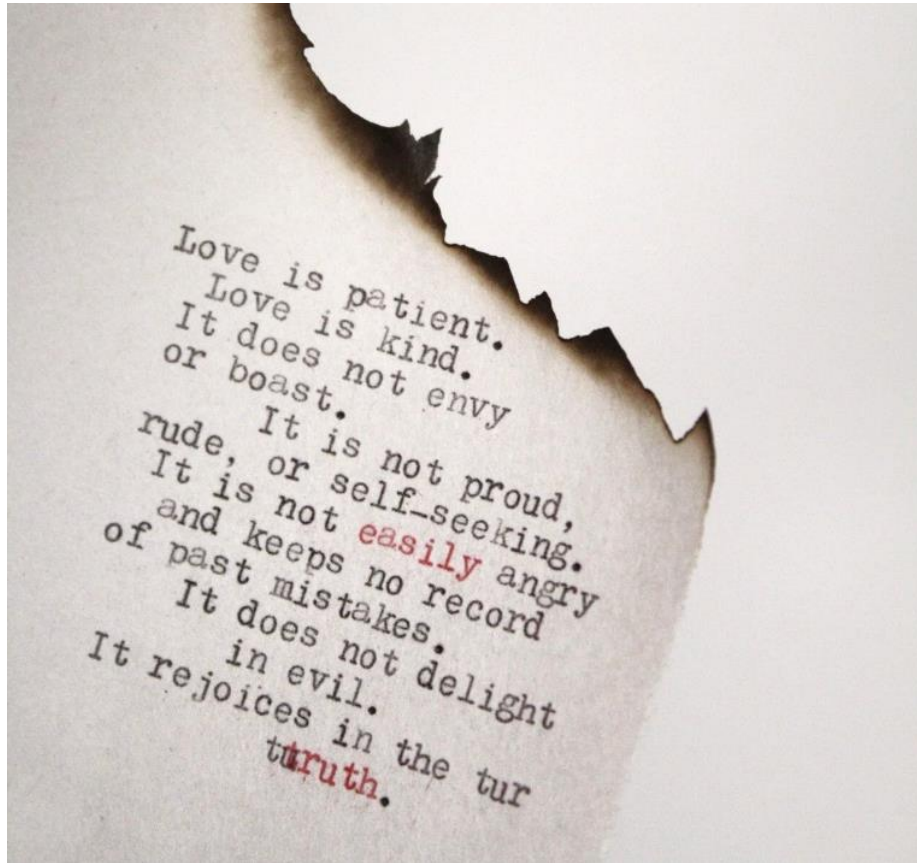 Love is patient.
Love is kind.
It does not envy
or boast.
It is not proud,
rude, or self-seeking.
It is not easily angry
and keeps no record
of past mistakes.
It does not delight
in evil.
It rejoices in the tur
truth.